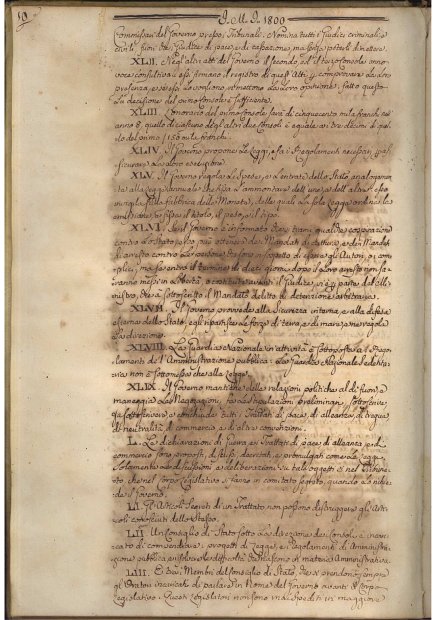 10
J. M. J. 1800
Commissari del Governo presso i Tribunali. Nomina tutti i Giudici criminali, e
civili fuori de' Giudici di pace, e di cassazione, ma senza poterli dimettere.
XLII. Negli altri atti del Governo il secondo, ed il terzo Console anno
voce consultiva: essi firmano il registro di questi Atti, per comprovare la loro
presenza, e se essi lo vogliono vi mettono la loro opinione, fatto questo
la decisione del primo Console è sufficiente.
XLIII. L'onorario del primo Console sarà di cinquecento mila franchi nell'
anno 8, quello di ciascuno degli altri due Consoli è eguale ai tre decimi di quel
lo del primo
XLIV. Il Governo propone le Leggi, e fa i Regolamenti necessari per as
sicurare la loro esecuzione.
XLV. Il Governo regola le Spese, e l'entrate dello Stato analogamen
te alla Legge annuale che fissa l'ammontare dell'une, e dell'altre: esso
invigila sulla fabbrica delle Monete, delle quali la sola Legge ordina la
emissione, ne fissa il titolo, il peso, e il tipo.
XLVI. Se il Governo è informato che si trami qualche cospirazione
contro lo Stato, esso può
contro le Persone che sono in sospetto di esserne gli Autori, o i com
plici, ma se entro il termine di dieci giorni dopo il loro arresto non sa
ranno messi in libertà, o
nistro, che avrà sottoscritto il Mandato delitto di detenzione arbitraria.
XLVII. Il Governo provvede alla sicurezza interna, e alla difesa
esterna dello Stato: egli ripartisce le forze di terra, e di mare, e ne regola
la direzione.
XLVIII. La Guardia Nazionale in attività è sottoposta ai Rego
lamenti dell'Amministrazione pubblica: la Guardia Nazionale sedenta
ria non è sottomessa che alla Legge.
XLIX. Il Governo mantiene delle relazioni politiche al di fuori,
maneggia le Negoziazioni, fa le stipulazioni preliminari, sottoscrive
fa sottoscrivere, e conchiude tutti i Trattati di pace, di alleanza, di tregua
di neutralità, di commercio, e di altre convenzioni.
L. Le dichiarazioni di Guerra, e i Trattati di pace, di alleanza, e di
commercio sono proposti, discussi, decretati, e promulgati come le Leggi;
solamente le discussioni, e deliberazioni su tali oggetti sì nel Tribuna
to, che nel Corpo Legislativo si fanno in comitato segreto, quando lo richie
de il Governo.
LI. Gli Articoli secreti di un Trattato non possono distruggere gli Arti
coli conosciuti dello stesso.
LII. Un Consiglio di Stato sotto la direzione dei Consoli è inca
ricato di compendiare i progetti di Legge, e i Regolamenti di Amministra
zione pubblica, e risolvere le difficoltà che nascono in materia Amministrativa.
LIII. E' tra i Membri del Consiglio di Stato, che si prendono sempre
gli Oratori incaricati di parlare in Nome del Governo avanti il Corpo
Legislativo: Questi Oratori non sono mai spediti in maggiore